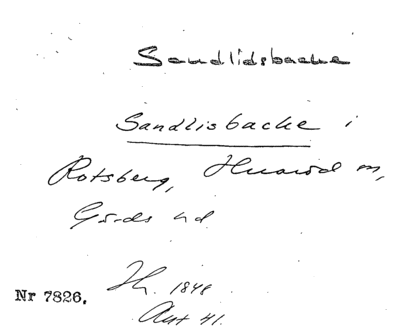 Sandlidsbacke
Sandlisbacke i
Rotsberg, Huaröd sn,
Gärds hd
Nr 7826.
Ht. 1848
Akt 41.